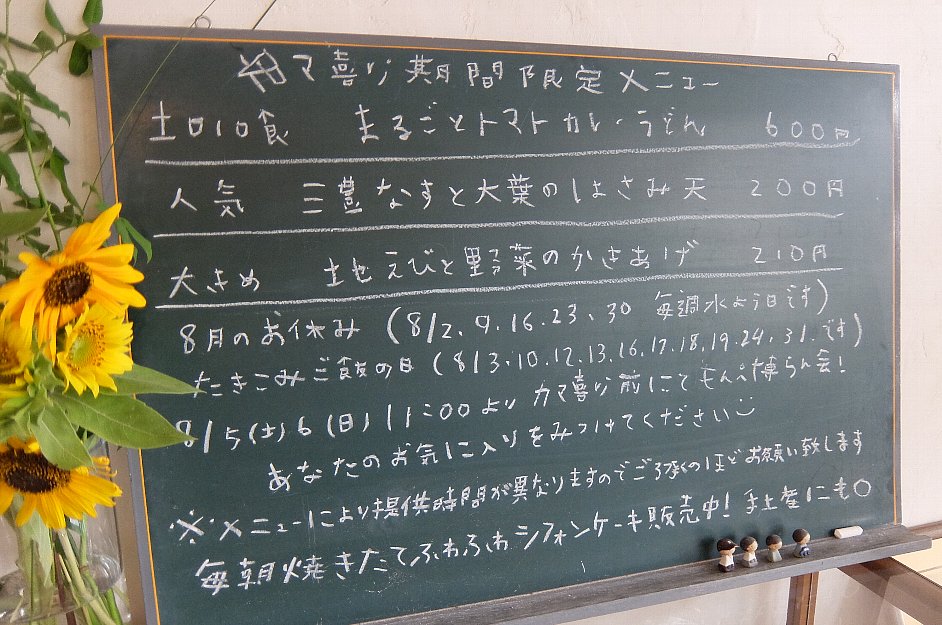 カマ喜ri期間限定メニュー
土日10食 まるごとトマトカレーうどん 600円
人気 三豊なすと大葉のはさみ天 200円
大きめ 地えびと野菜のかきあげ 210円
8月のお休み (8/2、9、16、23、30 毎週水よう日です)
たきこみご飯の日 (8/3、10、12、13、16、17、18、19、24、31、です)
8/5(土)6(日)11:00より カマ喜ri前にてもんぺ博らん会!
あなたのお気に入りをみつけてください
※メニューにより提供時間が異なりますのでご了承のほどお願い致します
毎朝焼きたてふわふわシフォンケーキ販売中!手土産にも〇